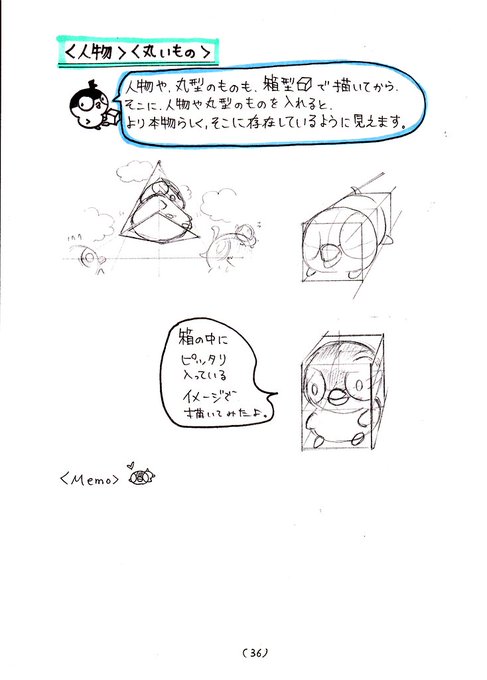 <人物><丸いもの>
人物や、丸型のものも、箱型で描いてから、
そこに、人物や丸型のものを入れると、
より本物らしく、そこに存在しているように見えます。
箱の中に
ピッタリ
入っている
イメージで
描いてみたよ。
<Memo>
(36)